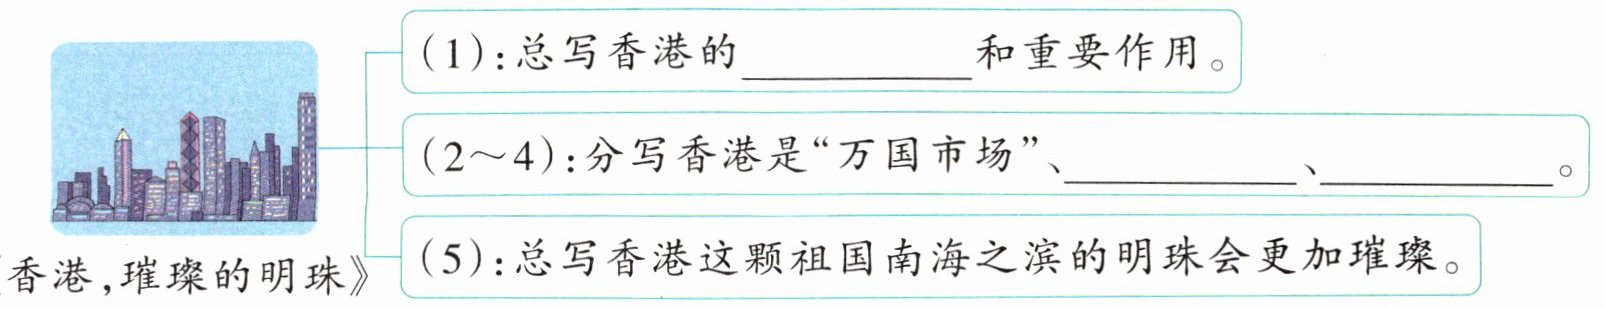 (1):总写香港的__________和重要作用。
(2～4):分写香港是“万国市场”、__________、__________。
(5):总写香港这颗祖国南海之滨的明珠会更加璀璨。
香港,璀璨的明珠》